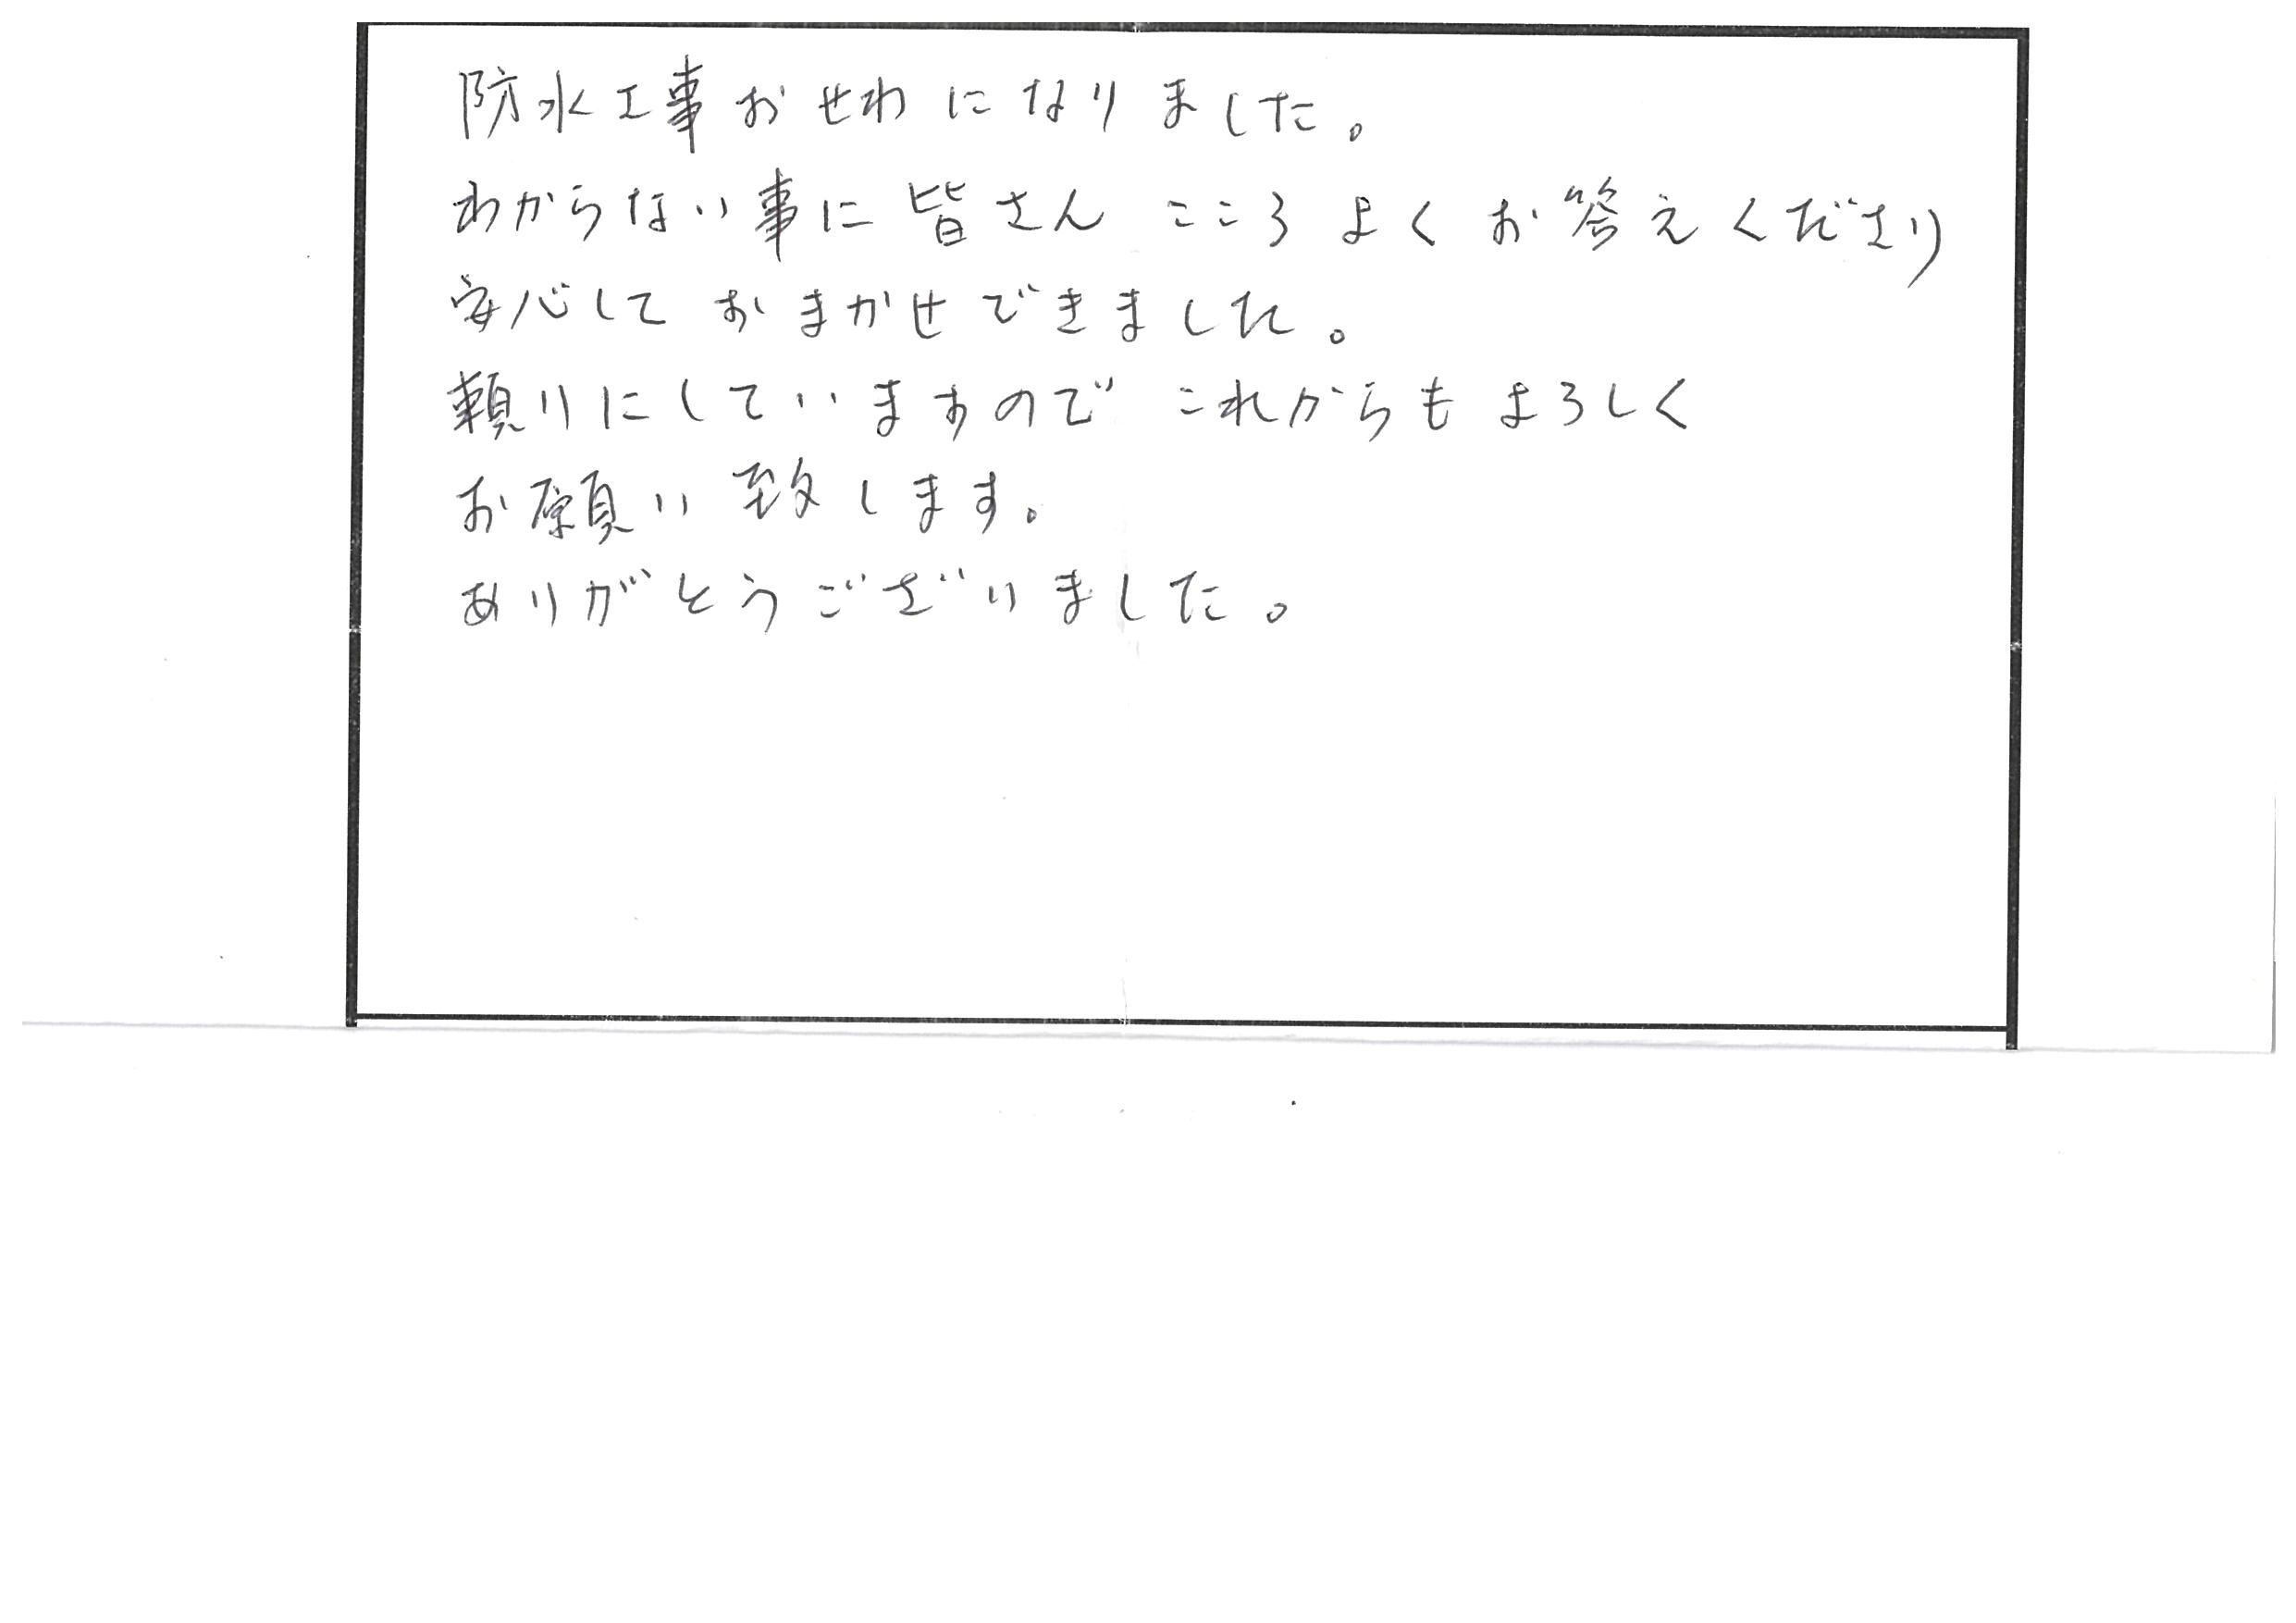 防水工事おせわになりました。
わからない事に皆さんこころよくお答えくださり
安心しておまかせできました。
頼りにしていますのでこれからもよろしく
お願い致します。
ありがとうございました。